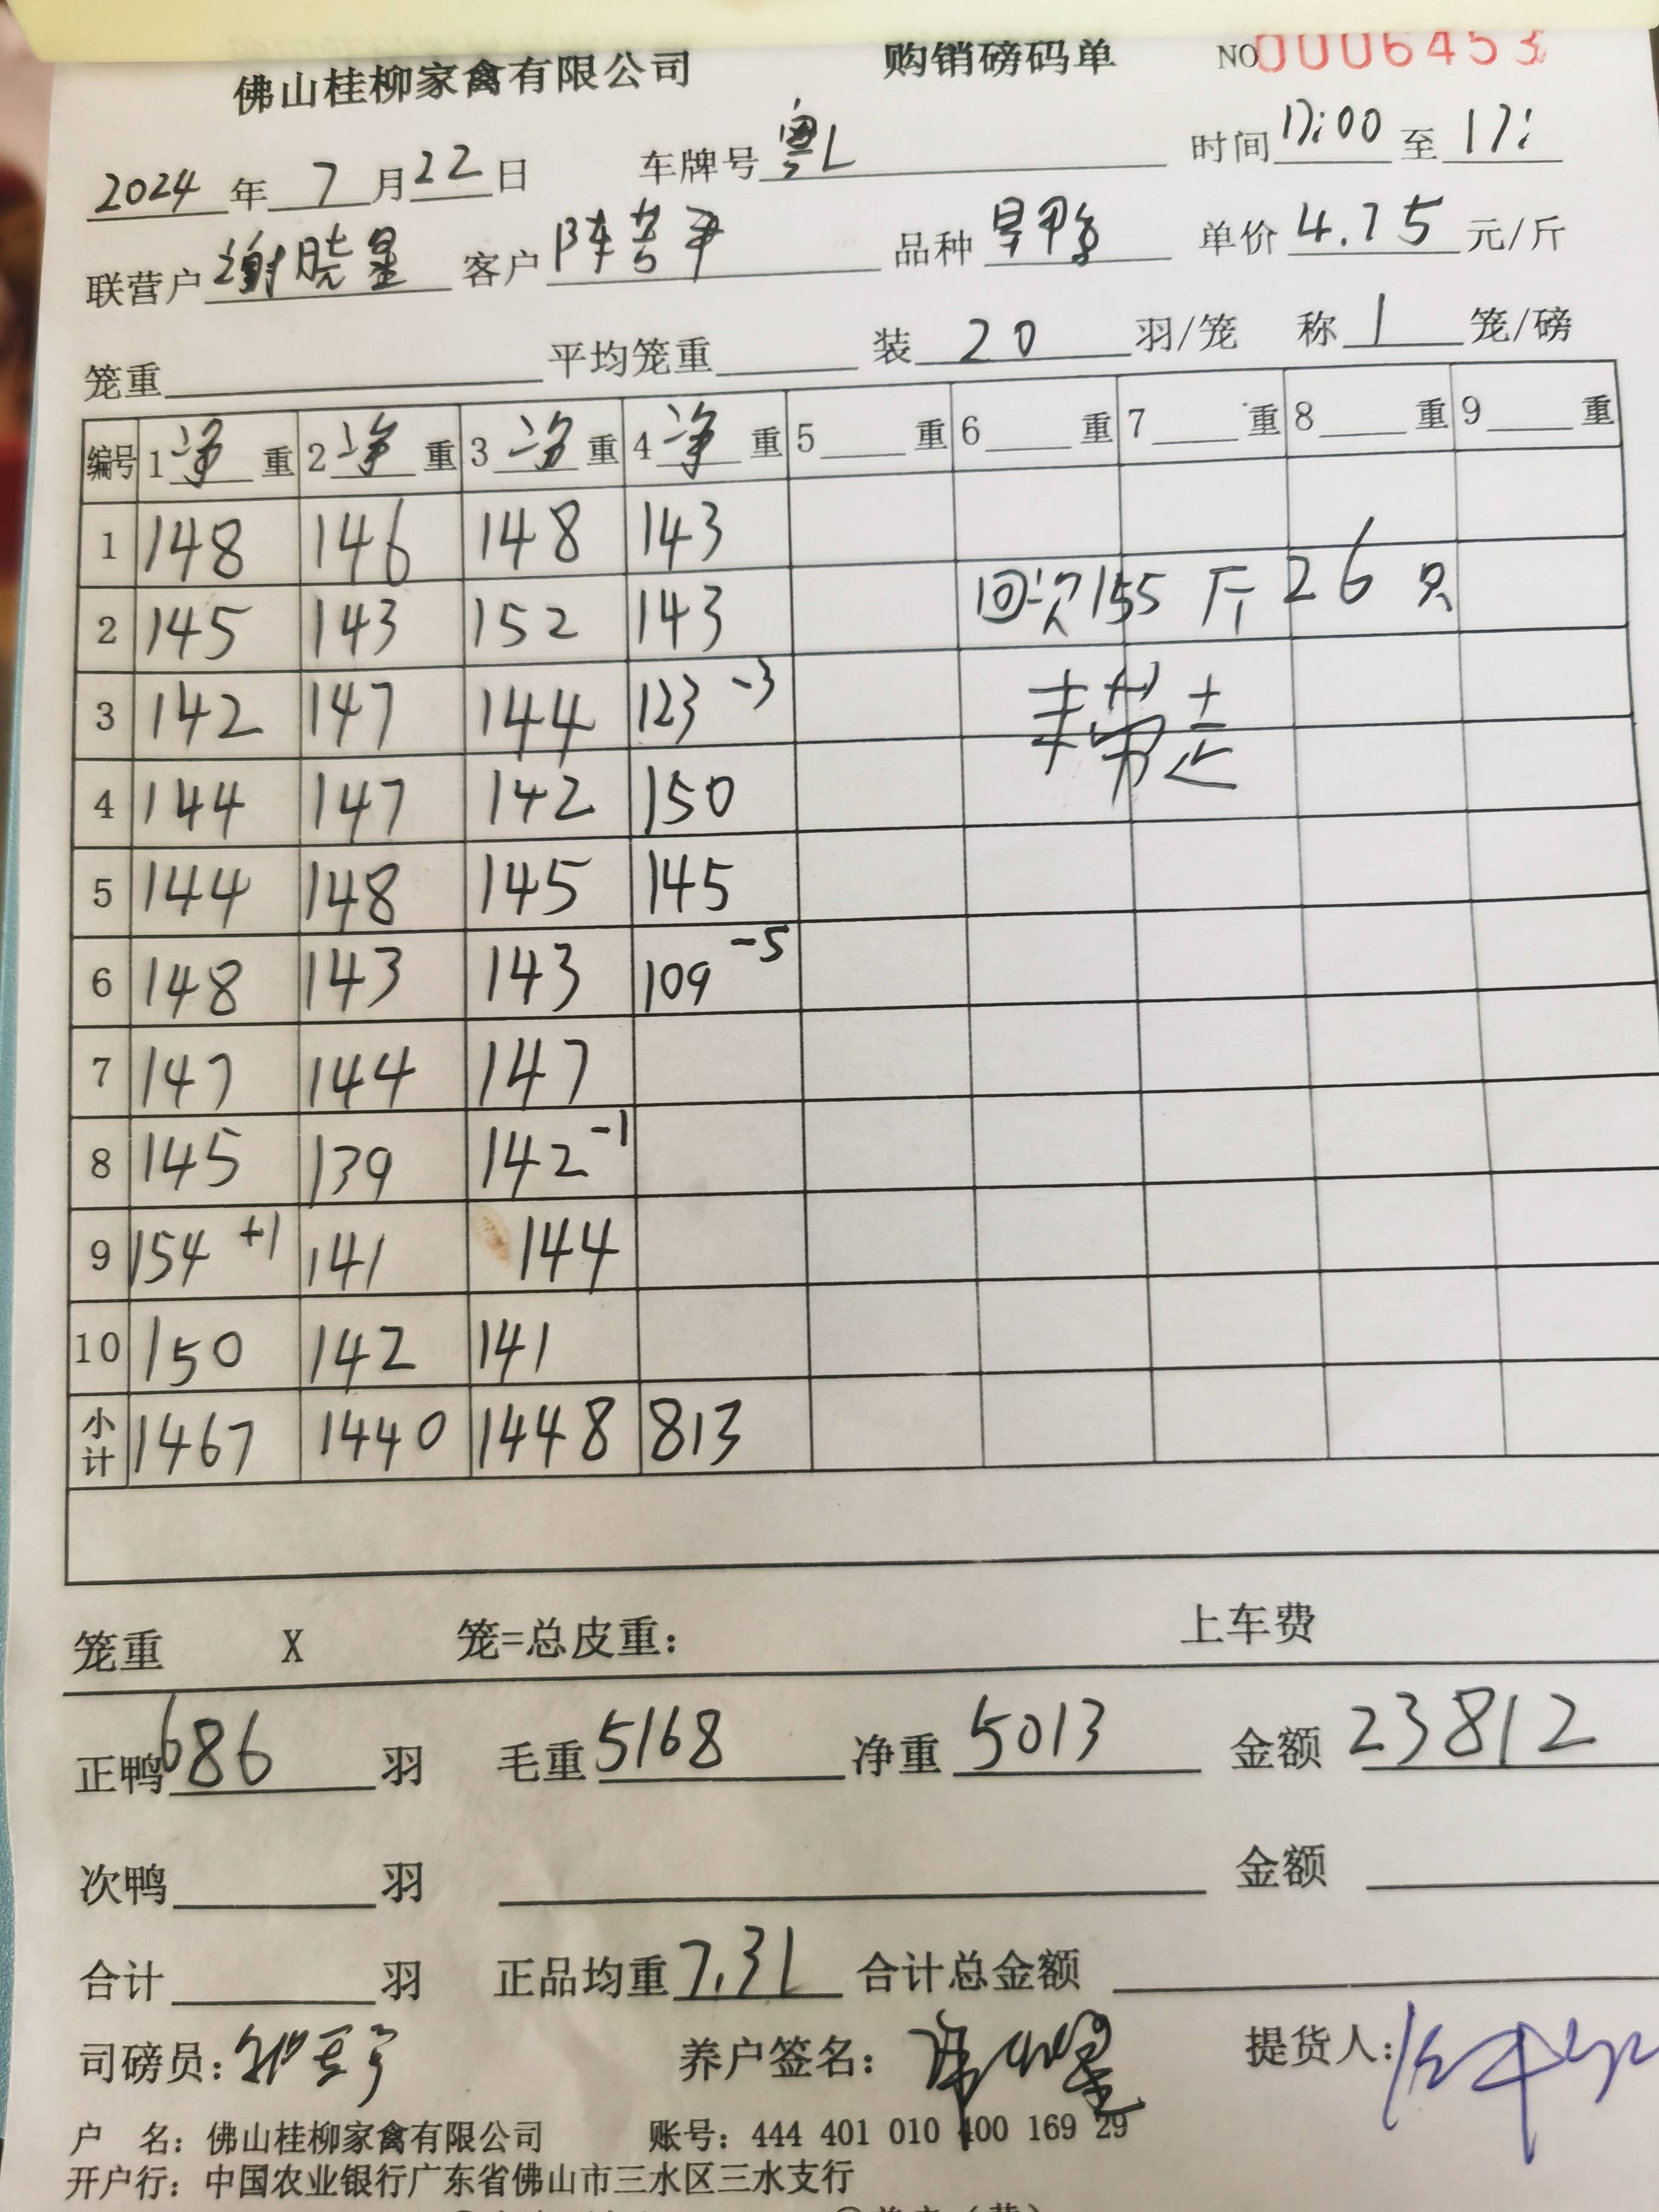 佛山桂柳家禽有限公司 购销磅码单 NO0006453
2024年7月22日 车牌号粤L 时间17:00至17:
联营户谢晓星 客户陈 品种旱鸭 单价4.75元/斤
笼重 平均笼重 装20羽/笼 称1笼/磅
编号 1净重 2净重 3净重 4净重 5重 6重 7重 8重 9重
1 148 146 148 143
2 145 143 152 143 回次155斤26只
3 142 147 144 123 -3 未带走
4 144 147 142 150
5 144 148 145 145
6 148 143 143 109 -5
7 147 144 147
8 145 139 142 -1
9 154 +1 141 144
10 150 142 141
小计 1467 1440 1448 813
笼重 X 笼=总皮重: 上车费
正鸭686羽 毛重5168 净重5013 金额23812
次鸭 羽 金额
合计 羽 正品均重7.31 合计总金额
司磅员: 养户签名: 提货人:
户 名:佛山桂柳家禽有限公司 账号:444 401 010 400 169 29
开户行:中国农业银行广东省佛山市三水区三水支行